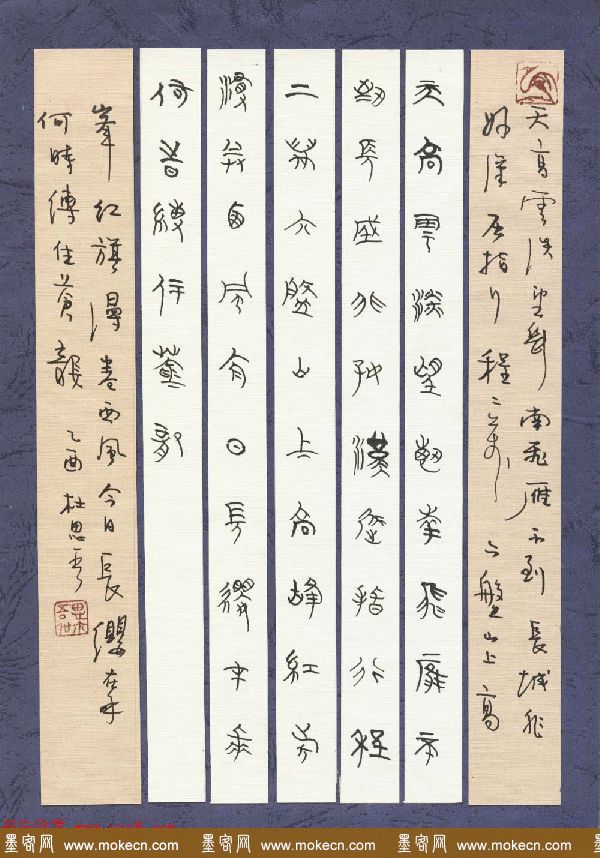 天高雲淡望斷南飛雁不到長城非
好漢屈指行程二萬六盤山上高
天高雲淡望斷南飛雁不
到長城非好漢屈指行程
二萬六盤山上高峰紅旗
漫卷西風今日長纓在手
何時縛住蒼龍
峯紅旗漫卷西風今日長纓在手
何時縛住蒼龍 乙酉 杜思
墨客网 www.mokecn.com 墨客网 www.mokecn.com 墨客网 www.mokecn.com